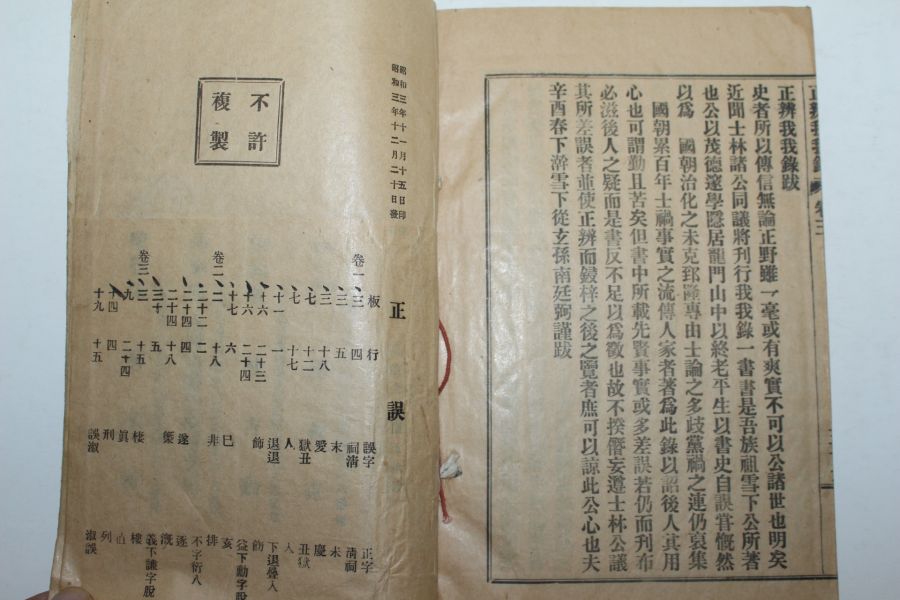 正辨我我錄跋
史者所以傳信無論正野雖一毫或有爽實不可以公諸世也明矣
近聞士林諸公同議將刊行我我錄一書書是吾族祖雪下公所著
也公以茂德邃學隱居龍門山中以終老平生以書史自誤甞慨然
以爲 國朝治化之未克郅隆專由士論之多歧黨禍之連仍裒集
國朝累百年士禍事實之流傳人家者著爲此錄以詔後人其用
心也可謂勤且苦矣但書中所載先賢事實或多差誤若仍而刊布
必滋後人之疑而是書反不足以爲徵也故不揆僭妄遵士林公議
其所差誤者並使正辨而鋟梓之後之覽者庶可以諒此公心也夫
辛酉春下澣雪下從玄孫南廷弼謹跋
正誤
板 行 誤字 正字
卷一 三 四 祠淸 淸祠
三 五 末 未
三 十八 愛 慶
七 十二 獄丑 丑獄
七 十七 人 入
十一 一 退退 下退疊入
十六 二十三 飾 飭
十六 二十四 益下動字脫
十七 六 巳 亥
卷二 二 十八 非 排
二十二 二 不字衍入
二十四 四 遂 逐
二十四 十八 槩 漑
三十 五 義下謙字脫
卷三 三 十五 棲 樓
九 二十四 眞 直
十四 四 刑 列
十九 十五 誤淑 淑誤
昭和三年十一月十五日印
昭和三年十二月二十日發
不許
複製